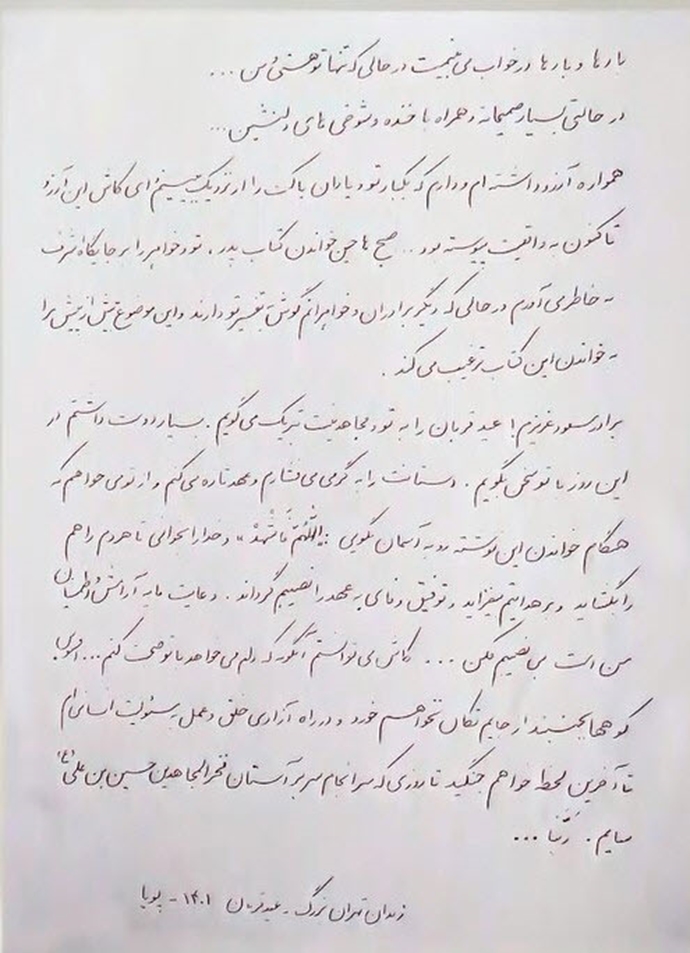 بارها و بارها در خواب می‌بینمت در حالی که تنها تو هستی و من ...
در حالتی بسیار صمیمانه و همراه با خنده و شوخی های دلنشین ...
همواره آرزو داشته ام و دارم که یکبار تو و یاران پاکت را از نزدیک ببینم ای کاش این آرزو
تاکنون به واقعیت پیوسته بود .. صبح ها حین خواندن کتاب پدر ، تو و خواهر را بر جایگاه اشرف
به خاطر می آورم در حالی که دیگر برادران و خواهرانم گوش به تفسیر تو دارند و این موضوع بیش از پیش مرا
به خواندن این کتاب ترغیب می کند .
برادر مسعود عزیزم ! عید قربان را به تو و مجاهدینت تبریک می گویم . بسیار دوست داشتم در
این روز با تو سخن بگویم . دستانت را به گرمی می فشارم و عهد تازه می کنم و از تو می خواهم که
هنگام خواندن این نوشته رو به آسمان بگویی : « اللّهُمَّ فَاشْهَدْ » و خدا را بخوانی تا هر دم راهم
را بگشاید و بر هدایتم بیفزاید و توفیق وفای به عهد را نصیبم گرداند . دعایت مایه آرامش و اطمینان
من است بی نصیبم مکن ... کاش می توانستم آنگونه که دلم می خواهد با تو صحبت کنم ...
کوهها بجنبند از جایم تکان نخواهم خورد و در راه آزادی خلق و عمل به مسئولیت انسانی ام
تا آخرین لحظه خواهم جنگید تا روزی که سرانجام سر بر آستان فخرالمجاهدین حسین بن علی (ع)
سایم . رَبَّنا ...
زندان تهران بزرگ - عید قربان ۱۴۰۱ - پویا